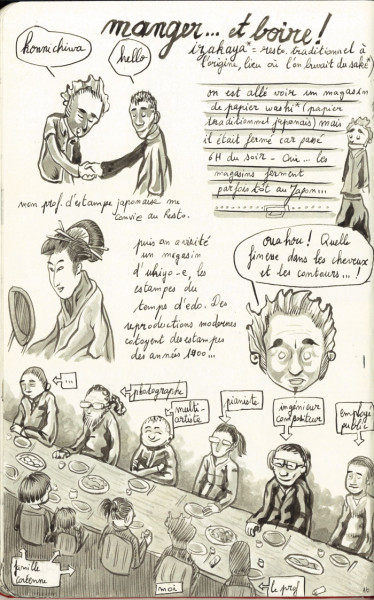 manger... et boire !
konnichiwa
hello
izakaya* = resto. traditionnel à
l'origine, lieu où l'on buvait du saké*
on est allé voir un magasin
de papier washi* (papier
traditionnel japonais) mais
il était fermé car passé
6H du soir - Oui... les
magasins ferment
parfois tôt au Japon...
mon prof. d'estampe japonaise me
convie au resto.
puis on a visité
un magasin
d'ukiyo-e, les
estampes du
temps d'edo. Des
reproductions modernes
cotoyent des estampes
des années 1800...
ouahou ! Quelle
finesse dans les cheveux
et les contours... !
...
photographe
multi-
artiste
pianiste
ingénieur
compositeur
employé
public
famille
coréenne
moi
le prof